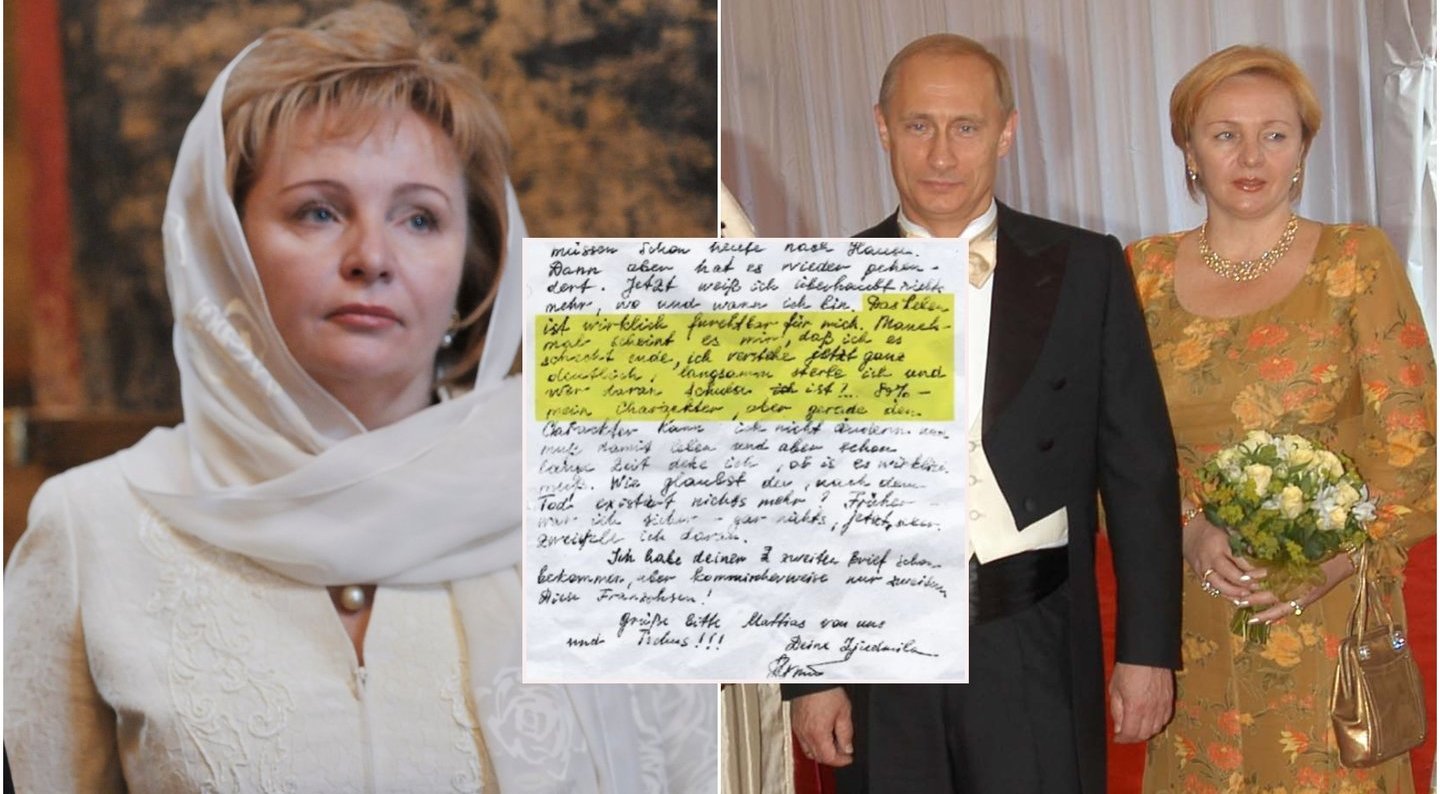 müssen schon heute nach Hause.
Dann aber hat es wieder gehen-
dert. Jetzt weiß ich überhaubt nichts
mehr, wo und wann ich bin. Das Leben
ist wirklich furchtbar für mich. Manch-
mal scheint es mir, daß ich es
schlecht ende, ich verstehe jetzt ganz
deutlich, langsamm sterbe ich und
wer daran Schuld ist?... 80% –
mein Charackter, aber gerade den
Charackter kann ich nicht ändern
muß damit leben und aber schon
lange Zeit denke ich, ob is es wirklich
muß. Wie glaubst du, nach dem
Tod existiert nichts mehr? Früher
war ich sicher – gar nichts, jetzt
zweifele ich daran.
Ich habe deinen zweiten Brief schon
bekommen, aber kommischerweise nur zweiten
Diese Franzohsen!
Grüße bitte Mattias von uns
und Tschus!!! Deine Ljudmila